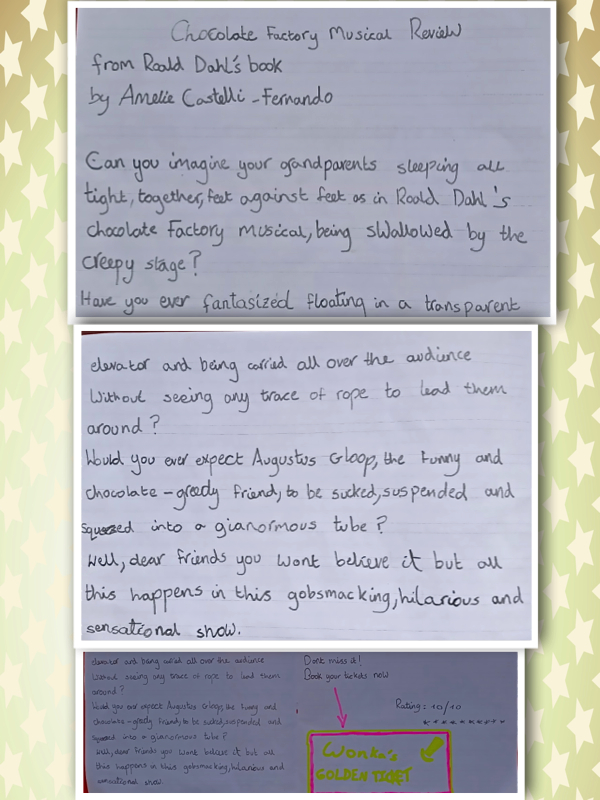 Chocolate Factory Musical Review
from Roald Dahl's book
by Amelie Castelli - Fernando
Can you imagine your grandparents sleeping all
tight, together, feet against feet as in Roald Dahl's
chocolate Factory Musical, being swallowed by the
creepy stage?
Have you ever fantasized floating in a transparent
elevator and being carried all over the audience
without seeing any trace of rope to lead them
around?
Would you ever expect Augustus Gloop, the funny and
chocolate - greedy friend, to be sucked, suspended and
into a gianormous tube?
Well, dear friends you wont believe it but all
this happens in this gobsmacking, hilarious and
sensational show.
elevator and being carried all over the audience
without seeing any trace of rope to lead them
around?
Would you ever expect Augustus Gloop, the funny and
chocolate - greedy friend, to be sucked, suspended and
into a gianormous tube?
Well, dear friends you wont believe it but all
this happens in this gobsmacking, hilarious and
sensational show.
Dont miss it!
Book your tickets now
Rating: 10/10
Wonka's
GOLDEN TICKET